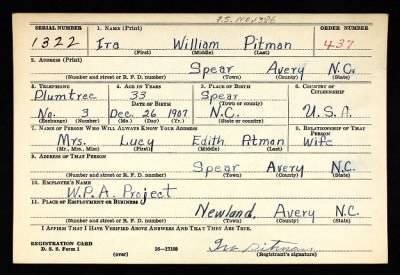 SERIAL NUMBER 1. NAME (Print) ORDER NUMBER
1322 Ira William Pitman 437
(First) (Middle) (Last)
2. ADDRESS (Print)
Spear Avery N.C.
(Number and street or R. F. D. number) (Town) (County) (State)
3. TELEPHONE 4. AGE IN YEARS 5. PLACE OF BIRTH 6. COUNTRY OF CITIZENSHIP
Plumtree 33 Spear
DATE OF BIRTH (Town or county)
No. 3 Dec. 26 1907 N.C. U.S.A.
(Exchange) (Number) (Mo.) (Day) (Yr.) (State or country)
7. NAME OF PERSON WHO WILL ALWAYS KNOW YOUR ADDRESS 8. RELATIONSHIP OF THAT PERSON
Mrs. Lucy Edith Pitman Wife
(Mr., Mrs., Miss) (First) (Middle) (Last)
9. ADDRESS OF THAT PERSON
Spear Avery N.C.
(Number and street or R. F. D. number) (Town) (County) (State)
10. EMPLOYER'S NAME
W.P.A. Project
11. PLACE OF EMPLOYMENT OR BUSINESS
Newland, Avery N.C.
(Number and street or R. F. D. number) (Town) (County) (State)
I AFFIRM THAT I HAVE VERIFIED ABOVE ANSWERS AND THAT THEY ARE TRUE.
REGISTRATION CARD
D. S. S. Form 1 (over) 16—17105 Ira Pitman
(Registrant's signature)